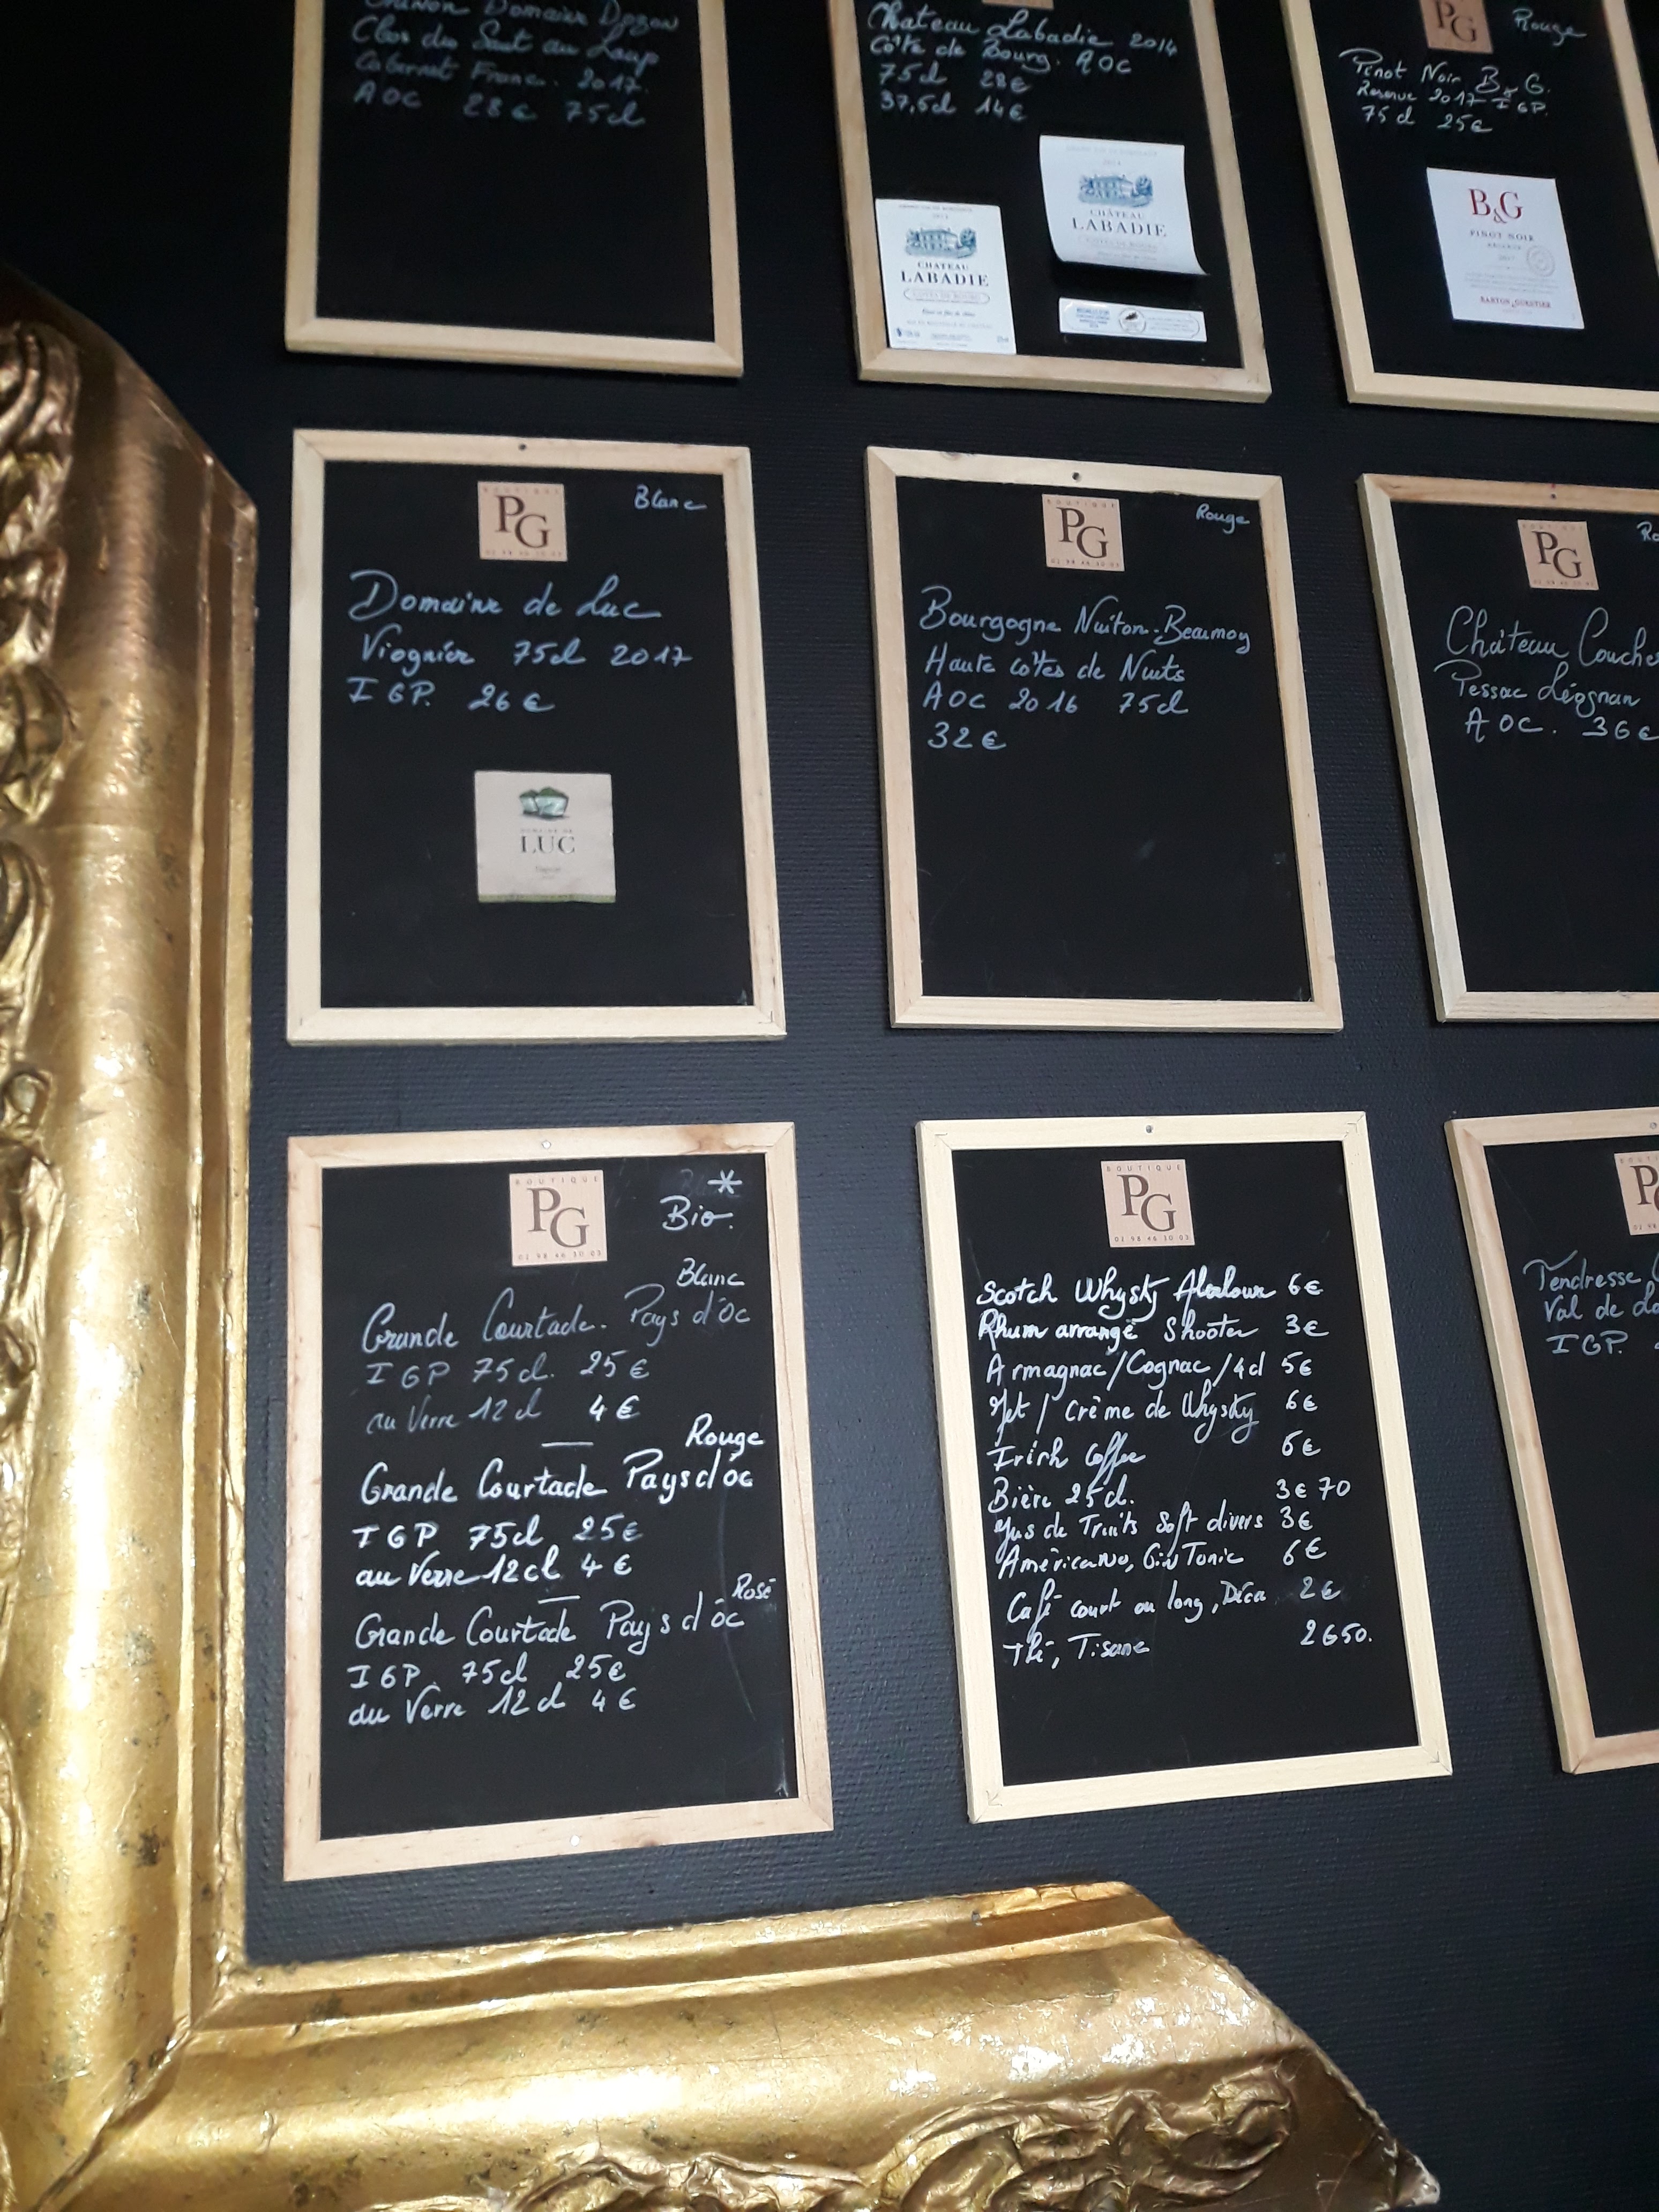 Chinon Domaine Dozon
Clos du Saut au Loup
Cabernet Franc. 2017.
AOC 28€ 75cl
Chateau Labadie 2014
Côte de Bourg. AOC
75cl 28€
37,5cl 14€
2014
CHÂTEAU
LABADIE
CHATEAU
LABADIE
PG
Rouge
Pinot Noir B&G.
Reserve 2017 IGP.
75cl 25€
B&G
PINOT NOIR
RESERVE
2017
BARTON & GUESTIER
BOUTIQUE
PG
02 98 46 30 03
Blanc
Domaine de Luc
Viognier 75cl 2017
IGP. 26€
DOMAINE DE
LUC
Viognier
BOUTIQUE
PG
02 98 46 30 03
Rouge
Bourgogne Nuiton-Beaunoy
Haute côtes de Nuits
AOC 2016 75cl
32€
BOUTIQUE
PG
02 98 46 30 03
Ro
Château Couche
Pessac Léognan
AOC. 36€
BOUTIQUE
PG
02 98 46 30 03
*
Bio.
Blanc
Grande Courtade. Pays d'Oc
IGP 75cl. 25€
au Verre 12cl 4€
Rouge
Grande Courtade Pays d'óc
IGP 75cl 25€
au Verre 12cl 4€
Rosé
Grande Courtade Pays d'óc
IGP. 75cl 25€
du Verre 12cl 4€
BOUTIQUE
PG
02 98 46 30 03
Scotch Whysky Aberlour 6€
Rhum arrangé Shooter 3€
Armagnac/Cognac/4cl 5€
Jet / Crème de Whysky 6€
Irish Coffee 6€
Bière 25cl. 3€70
Jus de Fruits Soft divers 3€
Américano, Gin Tonic 6€
Café court ou long, Déca 2€
Thé, Tisane 2€50.
PG
Tendresse
Val de Lo
IGP.